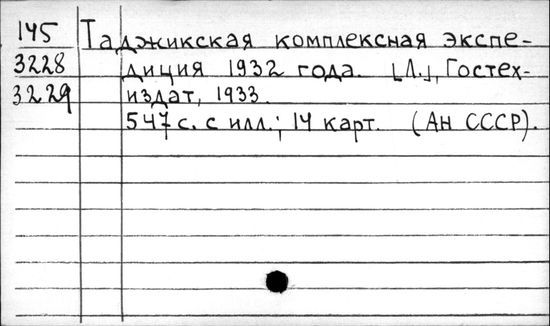 145 Таджикская комплексная экспе-
3228 диция 1932 года. [Л.], Гостех-
3229 издат, 1933.
547 с. с илл.; 14 карт. (АН СССР).